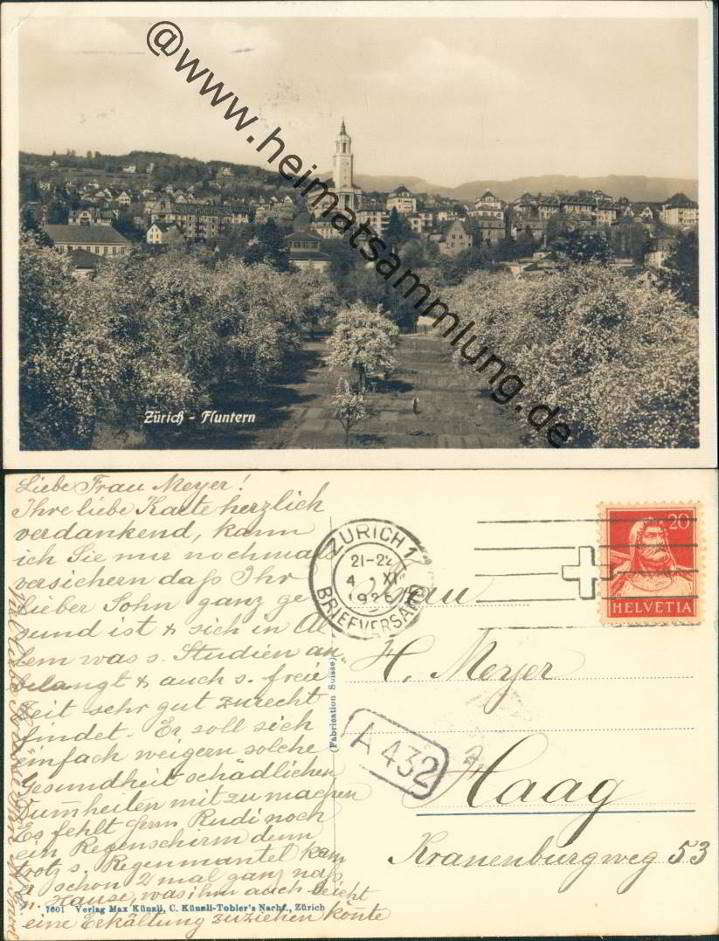 @www.heimatsammlung.de
Zürich - Fluntern
Liebe Frau Meyer!
Ihre liebe Karte herzlich
verdankend, kann
ich Sie nur nochmal
versichern daſs Ihr
lieber Sohn ganz ge
sund ist & sich in Al
lem was s. Studien an
belangt & auch s. freie
Zeit sehr gut zurecht
findet. Er soll sich
einfach weigern solche
Gesundheit schädlichen
Dum̄heiten mitzumachen
Es fehlt Rudi noch
ein Regenschirm denn
trotz s. Regenmantel kam
er schon 2 mal ganz naſs
n. Hause, was ihm auch leicht
eine Erkältung zuziehen könnte
1601 Verlag Max Künzli, C. Künzli-Tobler's Nachf., Zürich
(Fabrication Suisse)
ZÜRICH 1
21-22
4. XI
BRIEFVERSAND
20
HELVETIA
Frau
H. Meyer
A 432
Haag
Kranenburgweg 53